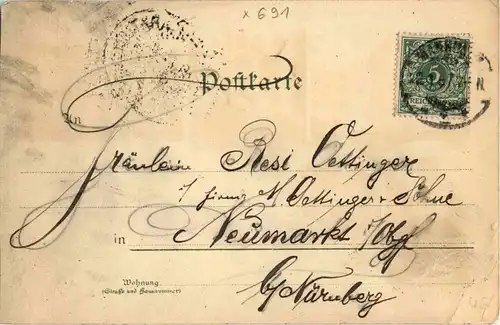 x 691
Postkarte
REICHSPOST
An
Fräulein Resi Oettinger
i/ Firma M. Oettinger & Söhne
in Neumarkt i/Obpf
Wohnung
(Straße und Hausnummer)
b/Nürnberg